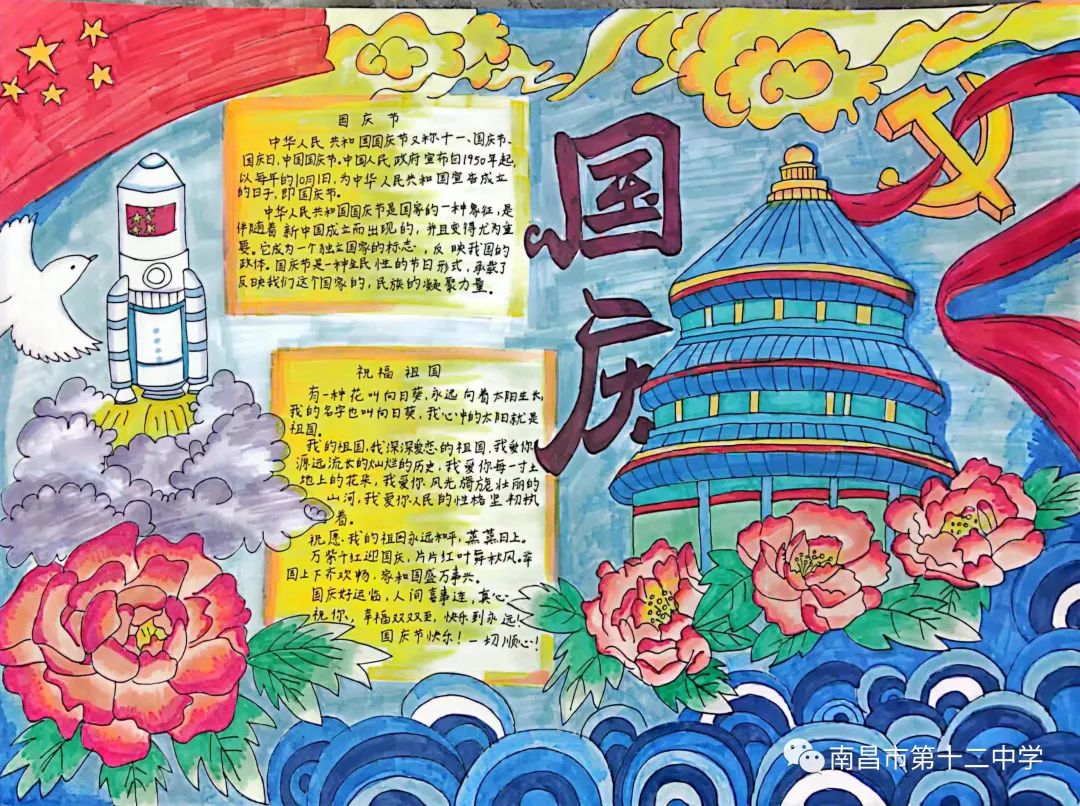 国庆节
中华人民共和国国庆节又称十一、国庆节、
国庆日、中国国庆节。中国人民政府宣布自1950年起,
以每年的10月1日,为中华人民共和国宣告成立
的日子,即国庆节。
中华人民共和国国庆节是国家的一种象征,是
伴随着新中国成立而出现的,并且变得尤为重
要。它成为一个独立国家的标志,反映我国的
政体。国庆节是一种全民性的节日形式,承载了
反映我们这个国家的,民族的凝聚力量。
国庆
祝福祖国
有一种花叫向日葵,永远向着太阳生长,
我的名字也叫向日葵,我心中的太阳就是
祖国。
我的祖国,我深深爱恋的祖国,我爱你
源远流长的灿烂的历史,我爱你每一寸土
地上的花朵,我爱你风光旖旎壮丽的
山河,我爱你人民的性格坚韧执
着。
祝愿我的祖国永远和平,蒸蒸日上。
万紫千红迎国庆,片片红叶舞秋风。举
国上下齐欢畅,家和国盛万事兴。
国庆好运临,人间喜事连,真心
祝你,幸福双双至,快乐到永远!
国庆节快乐!一切顺心!
南昌市第十二中学